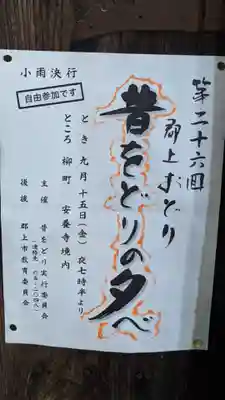 第二十六回
郡上おどり
昔をどりの夕べ
小雨決行
自由参加です
とき 九月十五日(金)夜七時半より
ところ 柳町 安養寺境内
主催 昔をどり実行委員会
後援 郡上市教育委員会